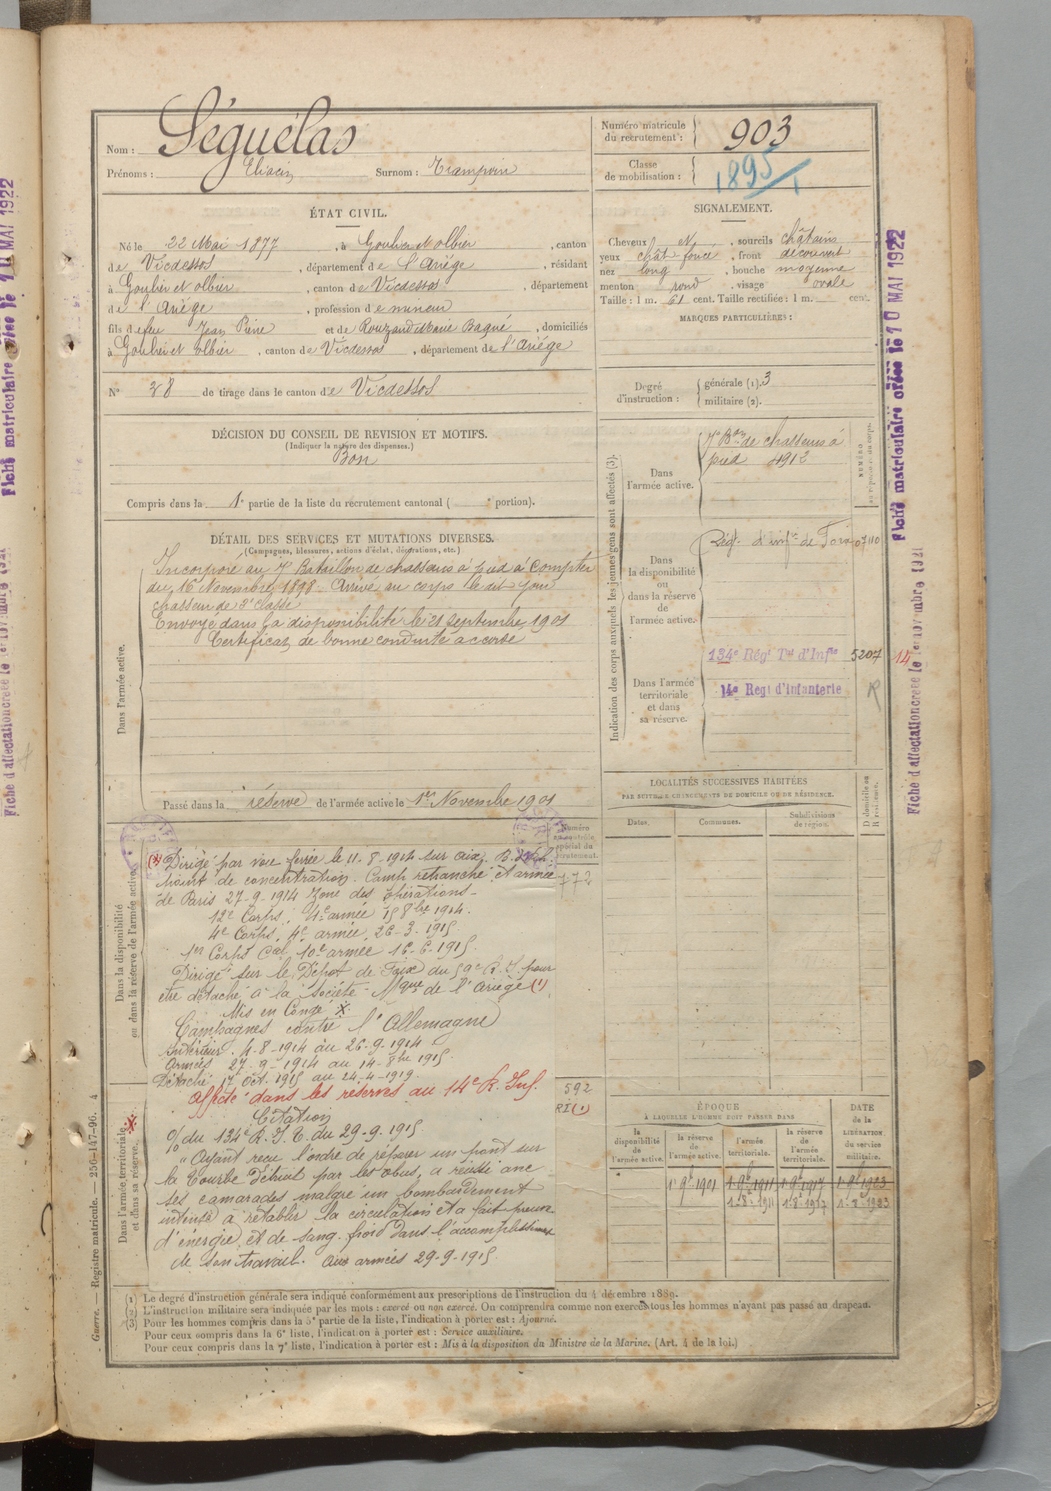 Nom : Séguélas
Prénoms : Eliacin Surnom : Trampoin
Numéro matricule du recrutement : 903
Classe de mobilisation : 1895/1
ÉTAT CIVIL.
Né le 22 Mai 1877, à Goulier et olbier, canton
de Vicdessos, département de l'Ariége, résidant
à Goulier et olbier, canton de Vicdessos, département
de l'Ariége, profession de mineur
fils de feu Jean Pierre et de Rouzaud Marie Baqué, domiciliés
à Goulier et olbier, canton de Vicdessos, département de l'Ariége
N° 28 de tirage dans le canton de Vicdessos
SIGNALEMENT.
Cheveux N, sourcils châtains
yeux chât foncé, front découvert
nez long, bouche moyenne
menton rond, visage ovale
Taille : 1 m. 61 cent. Taille rectifiée : 1 m. cent.
MARQUES PARTICULIÈRES :
Degré d'instruction : générale (1). 3
militaire (2).
DÉCISION DU CONSEIL DE REVISION ET MOTIFS.
(Indiquer la nature des dispenses.)
Bon
Compris dans la 1e partie de la liste du recrutement cantonal ( portion).
DÉTAIL DES SERVICES ET MUTATIONS DIVERSES.
(Campagnes, blessures, actions d'éclat, décorations, etc.)
Dans l'armée active.
Incorporé au 7e Bataillon de chasseurs à pied à compter
du 16 Novembre 1898. Arrivé au corps le dit jour
chasseur de 2e classe
Envoyé dans la disponibilité le 21 septembre 1901
Certificat de bonne conduite accordé
Passé dans la réserve de l'armée active le 1er Novembre 1901
Indication des corps auxquels les jeunes gens sont affectés (3).
Dans l'armée active.
7e Bon de chasseurs à
pied 4912
NUMÉRO
au répertoire du corps.
Dans la disponibilité ou dans la réserve de l'armée active.
Régt d'infie de Foix 07110
134e Régt Tal d'Infie 5207 14
Dans l'armée territoriale et dans sa réserve.
14e Regt d'Infanterie R
LOCALITÉS SUCCESSIVES HABITÉES
PAR SUITE DE CHANGEMENTS DE DOMICILE OU DE RÉSIDENCE.
Dates. Communes. Subdivisions de région. D domicile ou R résidence.
Dans la disponibilité ou dans la réserve de l'armée active.
Numéro au contrôle spécial du recrutement.
772
Dirigé par voie ferrée le 11-8-1914 sur aix
Point de concentration. Camp retranché et armée
de Paris 27-9-1914 Zone des opérations -
12e Corps, 4e armée 15 8bre 1914.
4e Corps, 4e armée, 26-3-1915.
1er Corps Cal 10e armée 16-6-1915.
Dirigé sur le Dépot de Foix du 59e R.I. pour
être détaché à la Société Mque de l'Ariège (1)
Mis en Congé X.
Campagnes contre l'Allemagne
Intérieur. 4-8-1914 au 26-9-1914
Armées 27-9-1914 au 14-8bre 1915.
Détaché 17 oct. 1915 au 24-4-1919.
Affecté dans les réserves au 14e R. Inf.
592
RI (1)
Dans l'armée territoriale et dans sa réserve.
Citation
O/ du 134e R.I.T. du 29-9-1915
"Ayant reçu l'ordre de réparer un pont sur
la Tourbe détruit par les obus, a réussi avec
ses camarades malgré un bombardement
intense à rétablir la circulation et a fait preuve
d'énergie et de sang froid dans l'accomplissement
de son travail. Aux armées 29-9-1915.
ÉPOQUE
À LAQUELLE L'HOMME DOIT PASSER DANS
DATE de la LIBÉRATION du service militaire.
la disponibilité de l'armée active. la réserve de l'armée active. l'armée territoriale. la réserve de l'armée territoriale.
1er 9e 1901 1er 9e 1911 1er 9e 1917 1er 9e 1923
1-8e 1911 1-8e 1917 1-8e 1923
(1) Le degré d'instruction générale sera indiqué conformément aux prescriptions de l'instruction du 4 décembre 1889.
(2) L'instruction militaire sera indiquée par les mots : exercé ou non exercé. On comprendra comme non exercés tous les hommes n'ayant pas passé au drapeau.
(3) Pour les hommes compris dans la 5e partie de la liste, l'indication à porter est : Ajourné.
Pour ceux compris dans la 6e liste, l'indication à porter est : Service auxiliaire.
Pour ceux compris dans la 7e liste, l'indication à porter est : Mis à la disposition du Ministre de la Marine. (Art. 4 de la loi.)
Guerre. — Registre matricule. — 256-147-96. 4
Fiche matriculaire créée le 10 MAI 1922
Fiche d'affectation créée le 1er novembre 1921
Fiche matriculaire créée le 10 MAI 1922
Fiche d'affectation créée le 1er novembre 1921